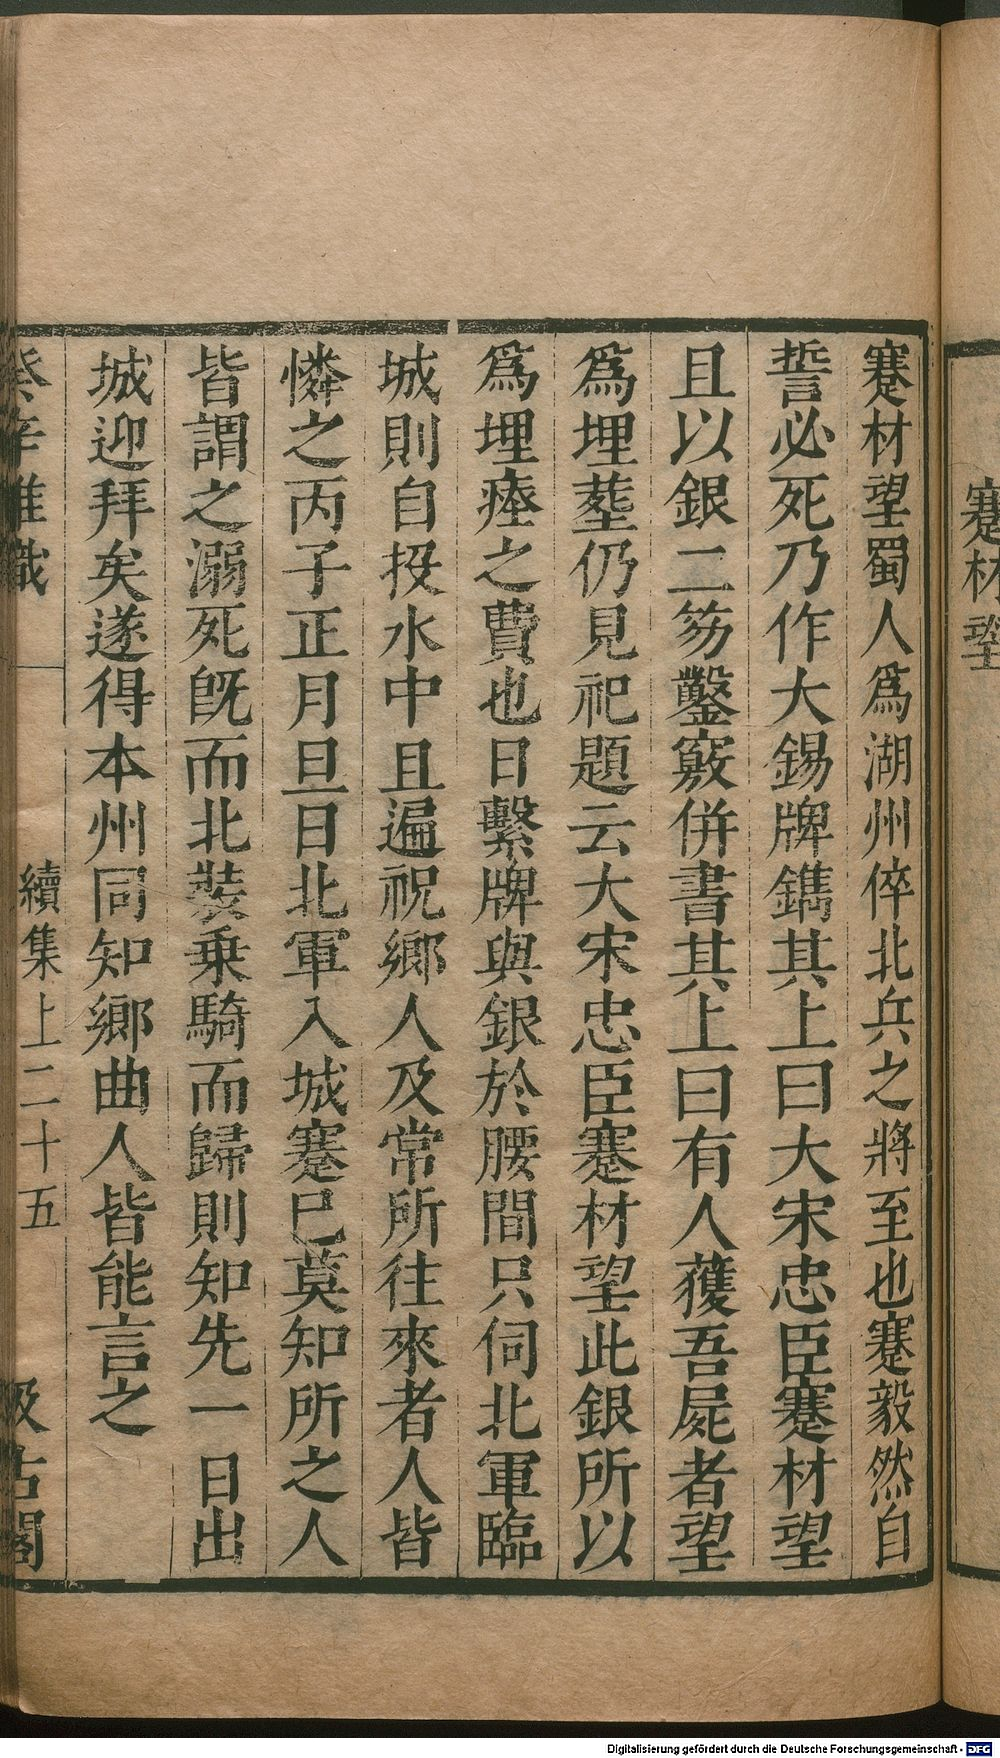 蹇材望
蹇材望蜀人爲湖州倅北兵之將至也蹇毅然自
誓必死乃作大錫牌鐫其上曰大宋忠臣蹇材望
且以銀二笏鑿竅併書其上曰有人獲吾屍者望
爲埋塟仍見祀題云大宋忠臣蹇材望此銀所以
爲埋瘞之費也日繫牌與銀於腰間只伺北軍臨
城則自投水中且遍祝鄉人及常所往來者人皆
憐之丙子正月旦日北軍入城蹇已莫知所之人
皆謂之溺死旣而北裝乗騎而歸則知先一日出
城迎拜矣遂得本州同知鄉曲人皆能言之
癸辛雜識
續集上二十五
汲古閣
Digitalisierung gefördert durch die Deutsche Forschungsgemeinschaft - DFG